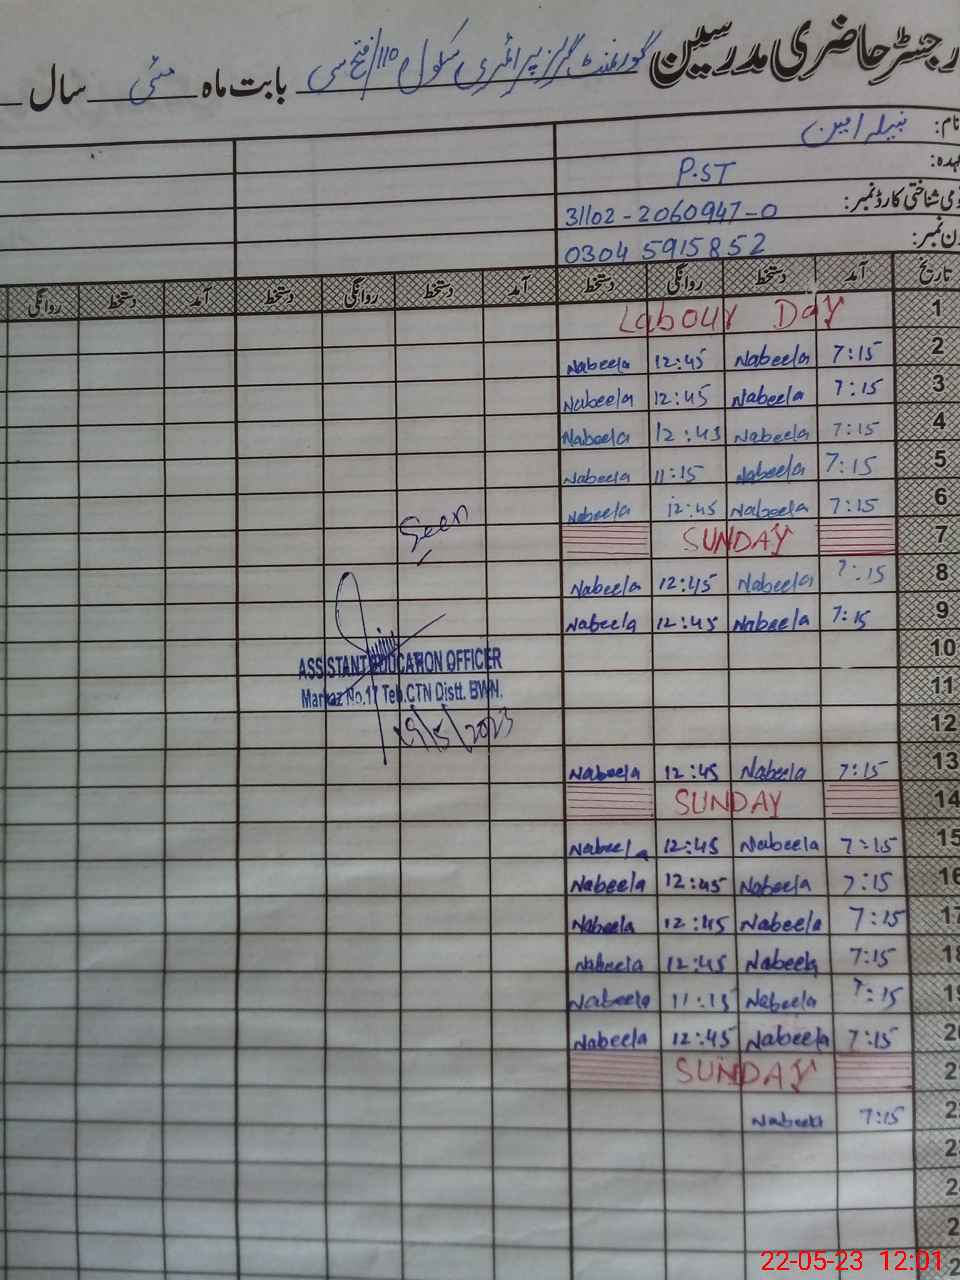 رجسٹر حاضری مدرسین گورنمنٹ گرلز پرائمری سکول 110/فتح سی بابت ماہ مئی سال
نام: نبیلہ امین
ہدہ: P.ST
می شناختی کارڈ نمبر: 31102-2060947-0
ن نمبر: 0304 5915852
تاریخ آمد دستخط روانگی دستخط آمد دستخط روانگی دستخط آمد دستخط روانگی
1 Labour Day
2 7:15 Nabeela 12:45 Nabeela
3 7:15 Nabeela 12:45 Nabeela
4 7:15 Nabeela 12:45 Nabeela
5 7:15 Nabeela 11:15 Nabeela
6 7:15 Nabeela 12:45 Nabeela
7 SUNDAY
8 7:15 Nabeela 12:45 Nabeela
9 7:15 Nabeela 12:45 Nabeela
10
11
12
13 7:15 Nabeela 12:45 Nabeela
14 SUNDAY
15 7:15 Nabeela 12:45 Nabeela
16 7:15 Nabeela 12:45 Nabeela
17 7:15 Nabeela 12:45 Nabeela
18 7:15 Nabeela 12:45 Nabeela
19 7:15 Nabeela 11:15 Nabeela
20 7:15 Nabeela 12:45 Nabeela
2 SUNDAY
2 7:15 Nabeela
2
2
2
2
Seen
ASSISTANT EDUCATION OFFICER
Markaz No.17 Teh.CTN Distt. BWN.
19/5/2023
22-05-23 12:01